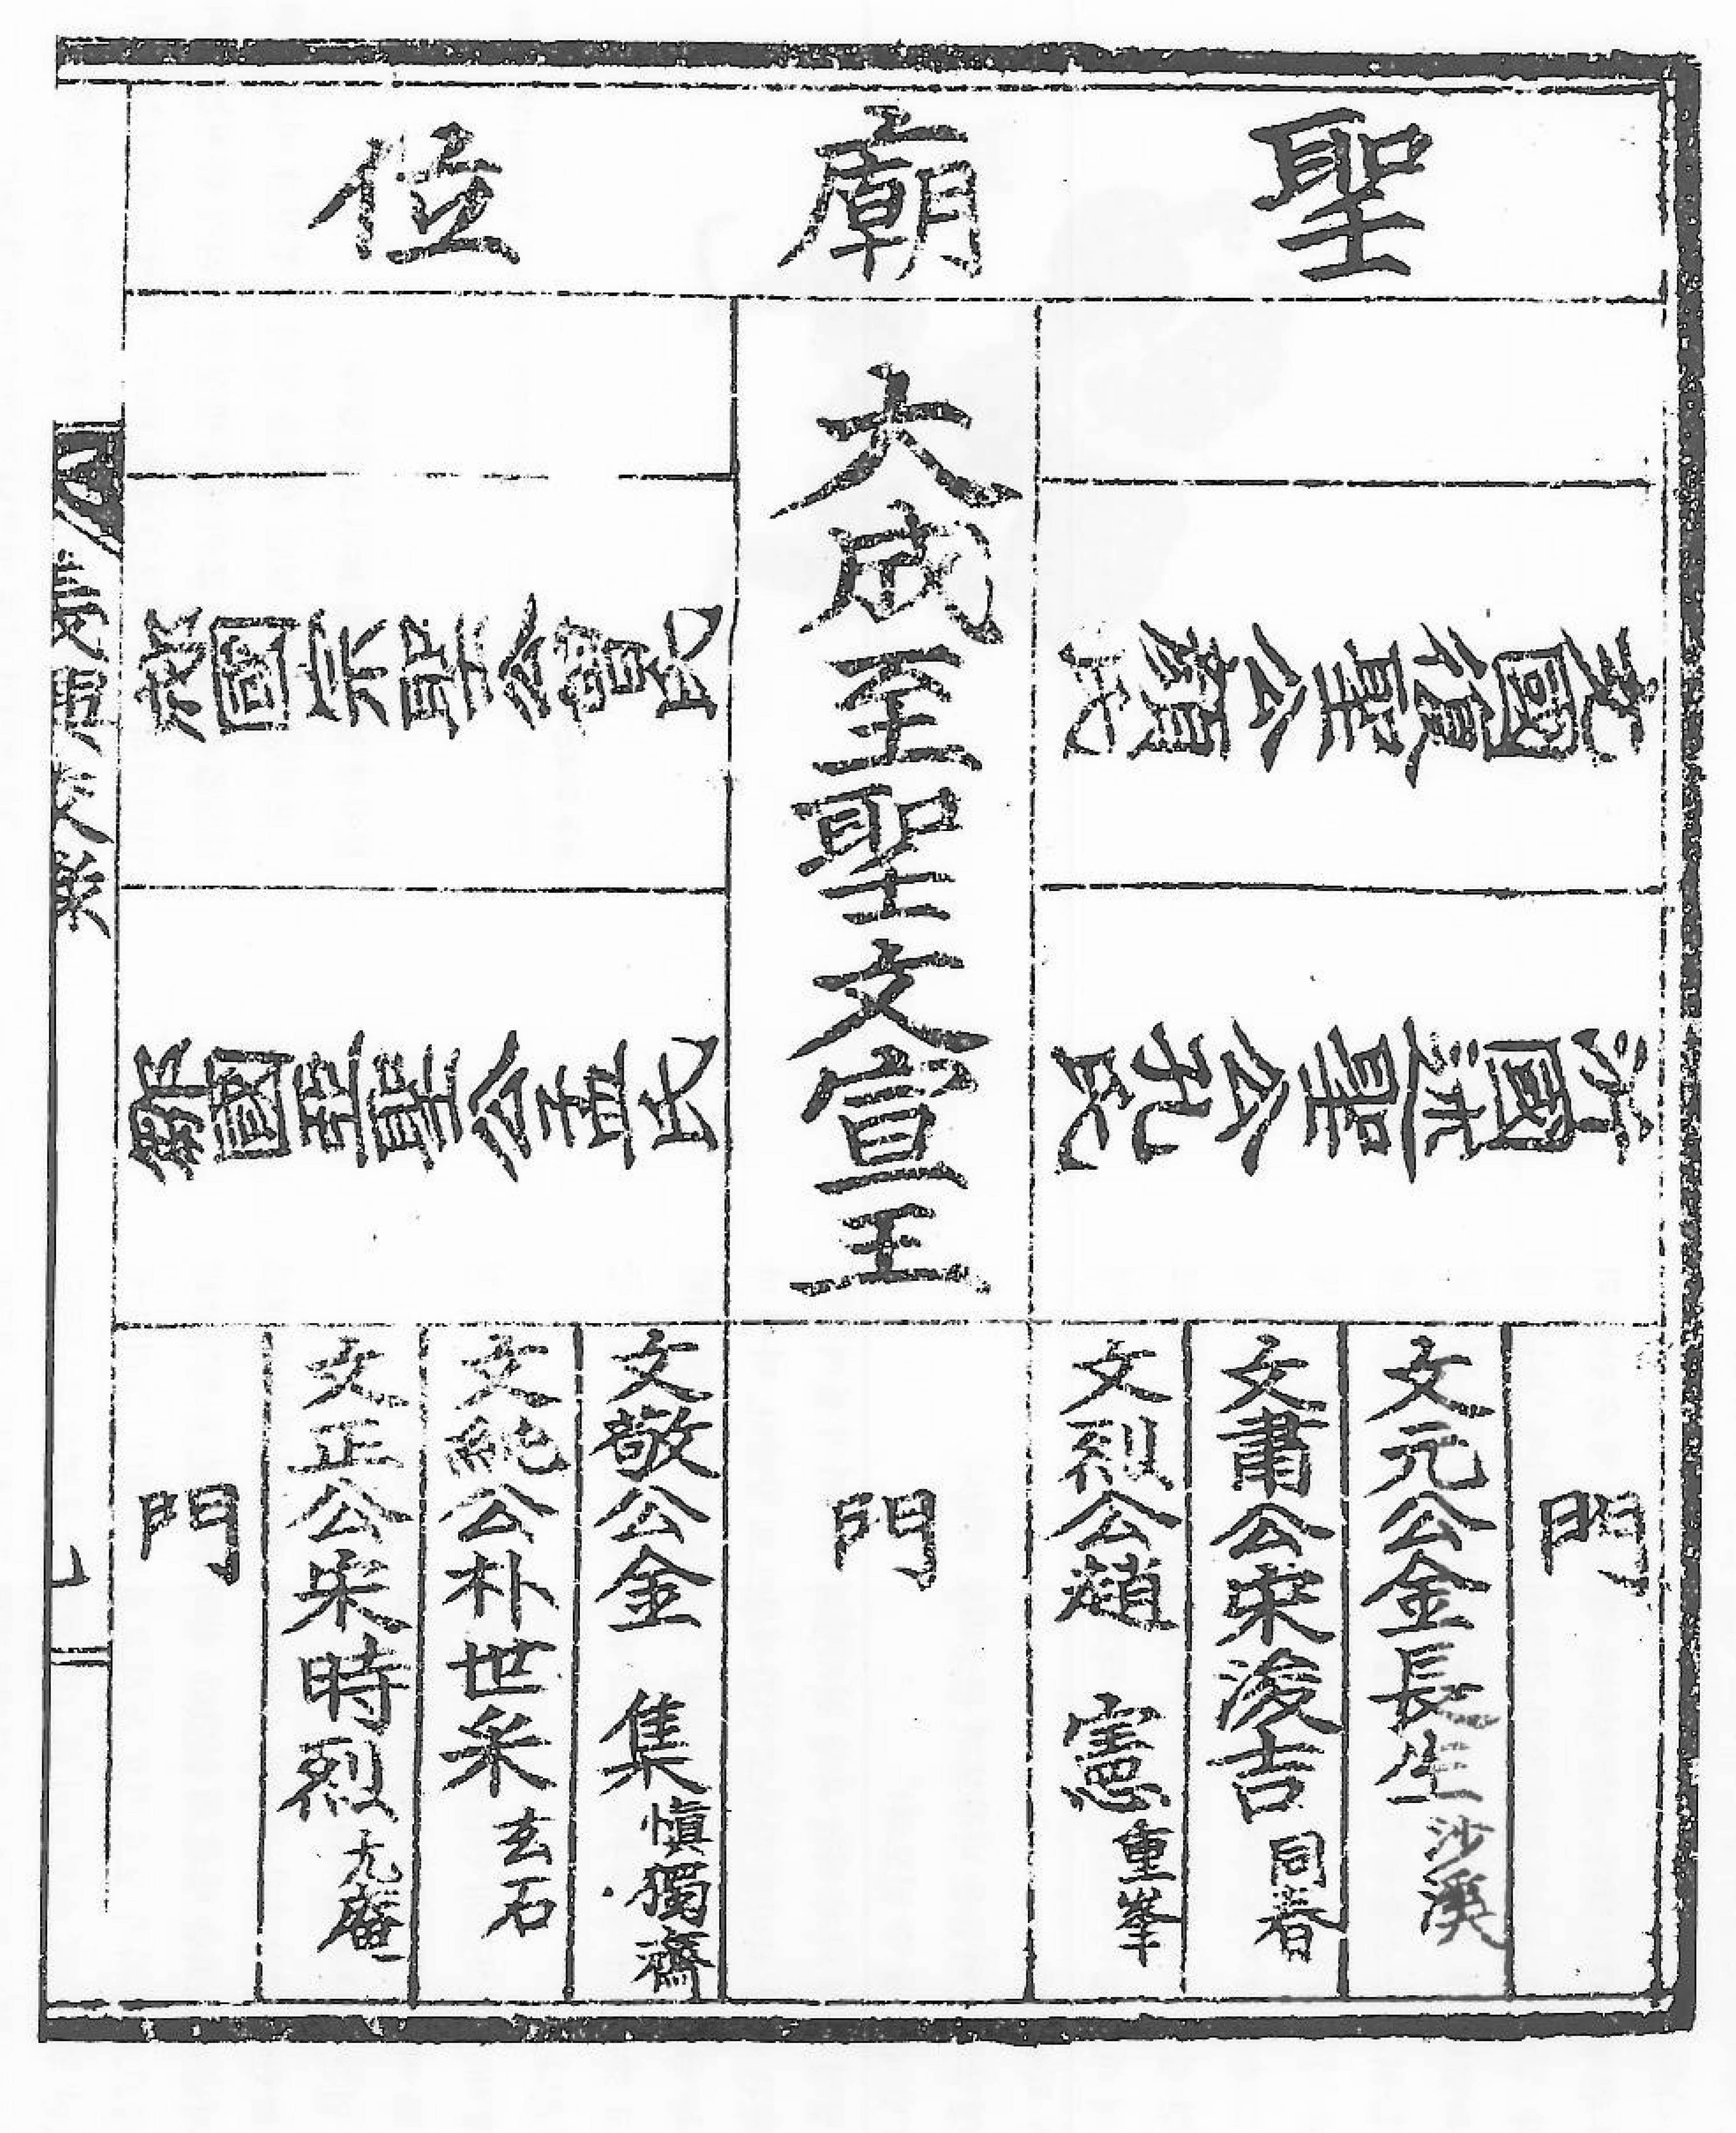 聖廟位
兗國復聖公顏氏
沂國述聖公孔氏
大成至聖文宣王
郕國宗聖公曾氏
鄒國亞聖公孟氏
門
文元公金長生 沙溪
文肅公宋浚吉 同春
文烈公趙 憲 重峯
門
文敬公金 集 愼獨齋
文純公朴世采 玄石
文正公宋時烈 尤庵
門